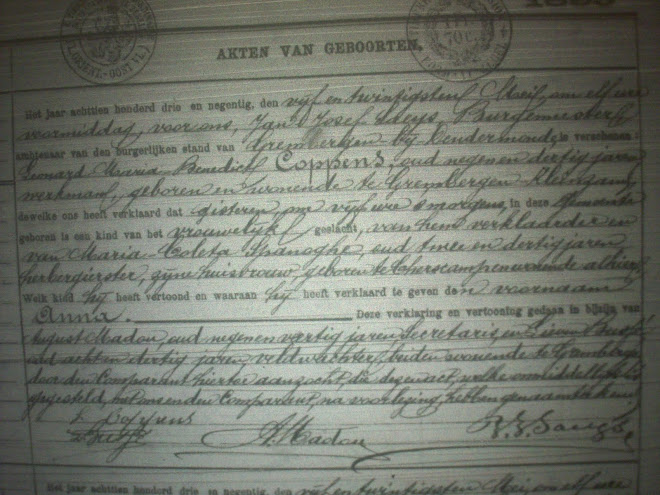 AKTEN VAN GEBOORTEN.
Het jaar achttien honderd drie en negentig, den vijf en twintigsten Mei, om elf ure
voormiddag, voor ons, Jan Josef Burgemeester
ambtenaar van den burgerlijken stand van Grembergen bij Dendermonde, is verschenen:
Leonard Maria Benedict Coppens, oud negen en dertig jaren
werkman, geboren en wonende te Grembergen
dewelke ons heeft verklaard dat gisteren, om vijf ure 's morgens, in deze Gemeente
geboren is een kind van het vrouwelijk geslacht, van hem verklaarder en
van Maria Coleta Spanoghe, oud twee en dertig jaren
herbergierster, zijne huisvrouw, geboren te Cherscamp en wonende alhier,
Welk kind hij heeft vertoond en waaraan hij heeft verklaard te geven den voornaam
Anna. Deze verklaring en vertooning gedaan in bijzijn van
August Madou, oud negen en veertig jaren, Secretaris, en
oud acht en dertig jaren veldwachter, beiden wonende te Grembergen
door den Comparant hiertoe aanzocht, die dezen act,
opgesteld, met ons en den Comparant, na voorlezing, hebben
L Coppens
A. Madou
Het jaar achttien honderd drie en negentig, den vijf en twintigsten Mei, om elf ure